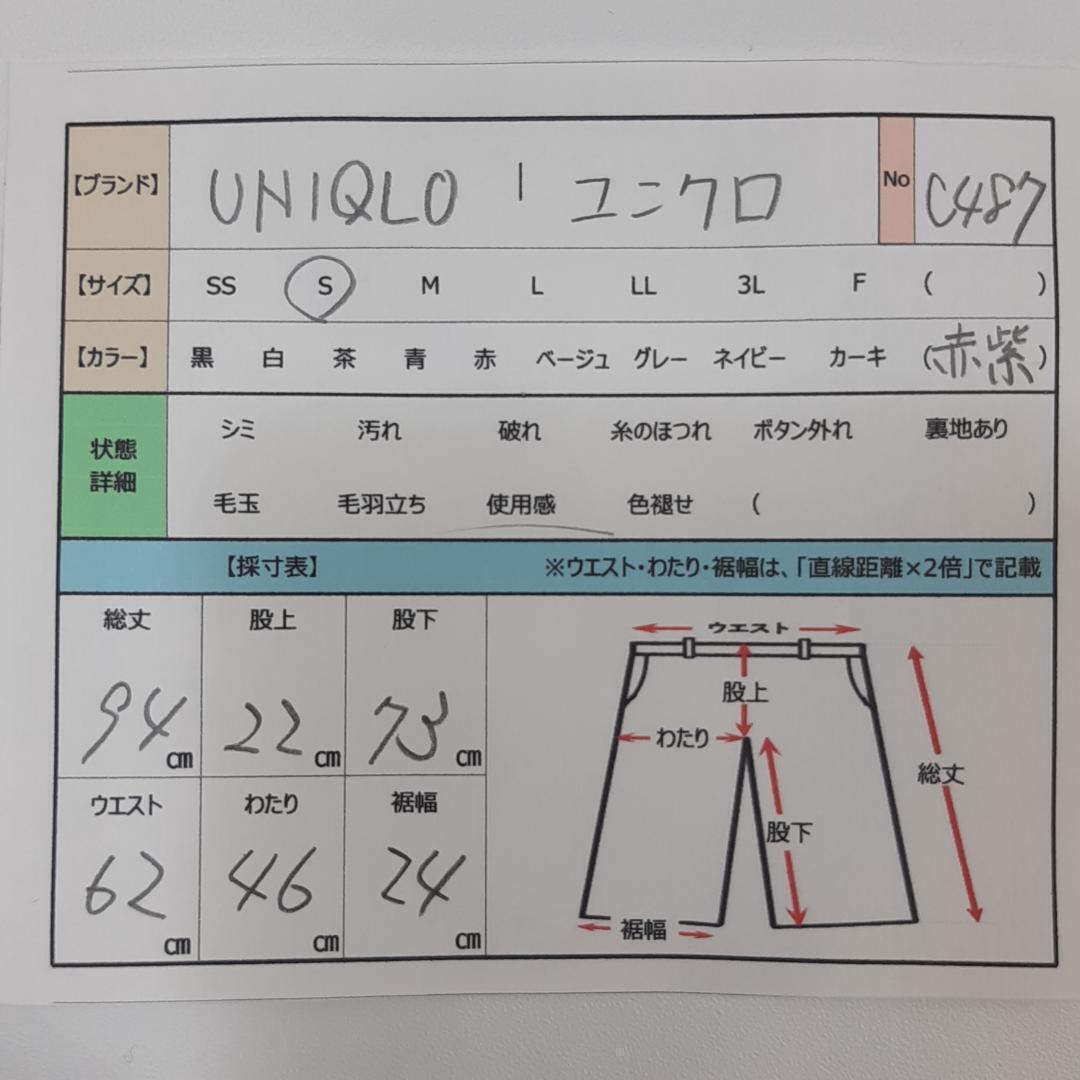 【ブランド】 UNIQLO | ユニクロ No C487
【サイズ】 SS S M L LL 3L F ( )
【カラー】 黒 白 茶 青 赤 ベージュ グレー ネイビー カーキ (赤紫)
状態
詳細
シミ 汚れ 破れ 糸のほつれ ボタン外れ 裏地あり
毛玉 毛羽立ち 使用感 色褪せ ( )
【採寸表】 ※ウエスト・わたり・裾幅は、「直線距離×2倍」で記載
総丈 股上 股下
94cm 22cm 73cm
ウエスト わたり 裾幅
62cm 46cm 24cm
ウエスト
股上
わたり
総丈
股下
裾幅